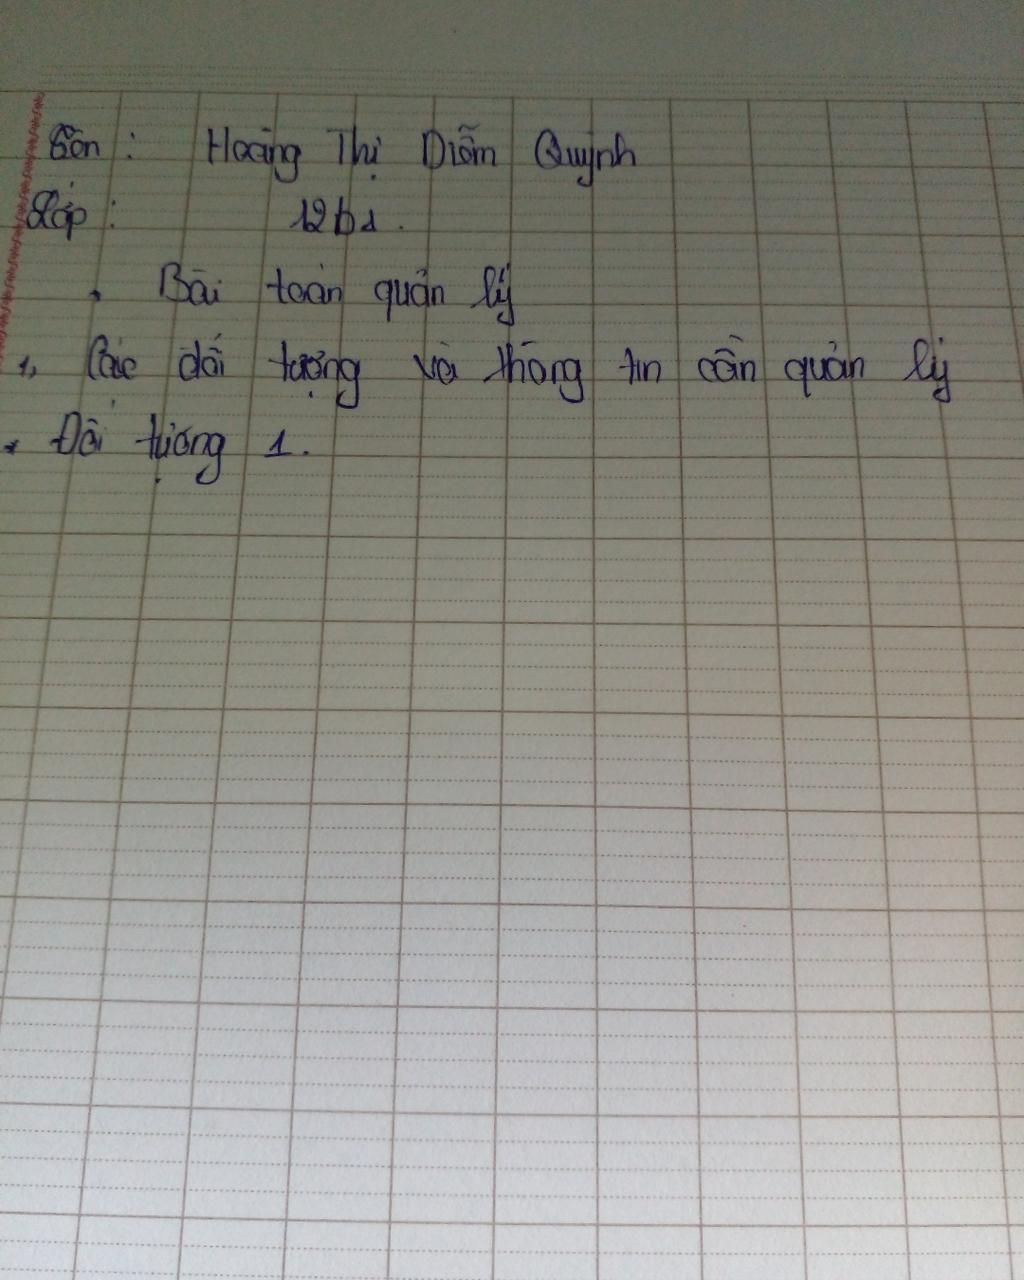 Tên : Hoàng Thị Diễm Quỳnh
Lớp : 12b1.
. Bài toán quản lý
1, Các đối tượng và thông tin cần quản lý
* Đối tượng 1.